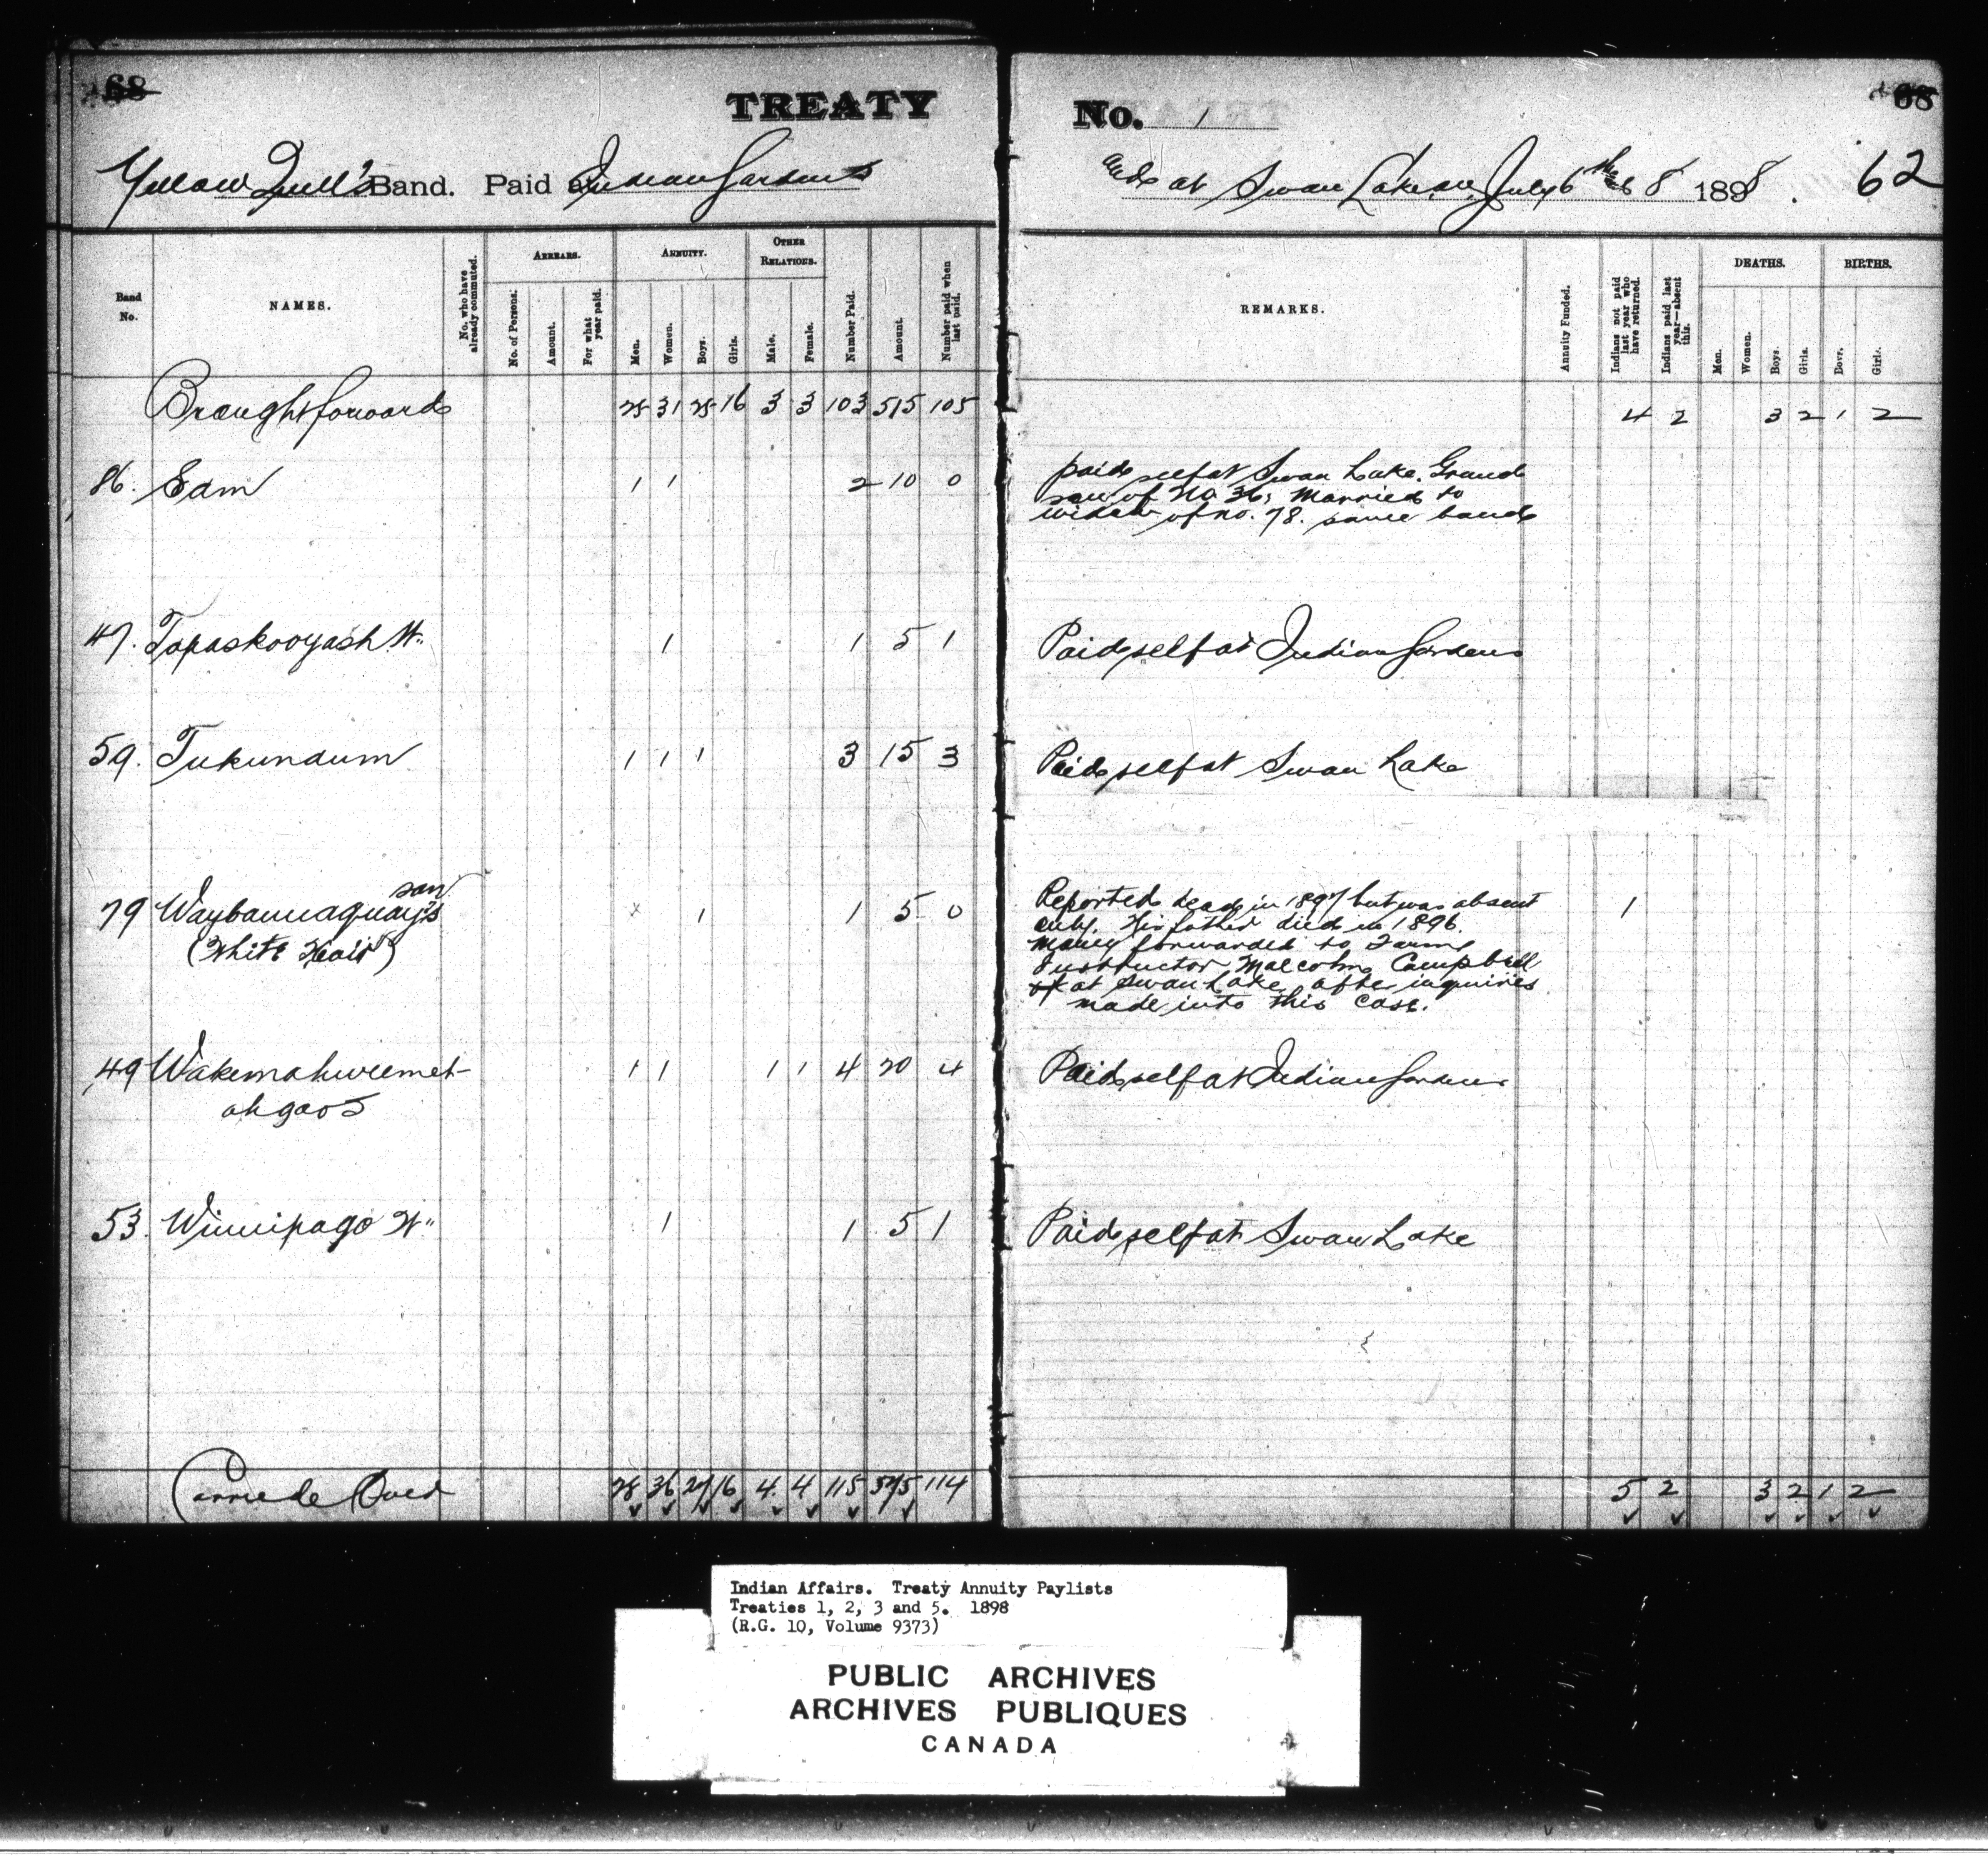 68
TREATY
Yellow Quill's Band. Paid at Indian Gardens
Band No.
NAMES.
No. who have already commuted.
ARREARS.
No. of Persons.
Amount.
For what year paid.
ANNUITY.
Men.
Women.
Boys.
Girls.
OTHER RELATIONS.
Male.
Female.
Number Paid.
Amount.
Number paid when last paid.
Brought forward 25 31 25 16 3 3 103 515 105
86. Sam 1 1 2 10 0
47. Tapaskooyash W. 1 1 5 1
59. Tukundum 1 1 1 3 15 3
79 Waybaunaquay's son 1 1 5 0
(White Hair)
49 Wakemahweemet- 1 1 1 1 4 20 4
ahgoos
53. Winnipago W. 1 1 5 1
Carried Over 28 36 27 16 4 4 115 575 114
No. 1
68
and at Swan Lake on July 6th & 8 1898.
62
REMARKS.
Annuity Funded.
Indians not paid last year who have returned.
Indians paid last year—absent this.
DEATHS.
Men.
Women.
Boys.
Girls.
BIRTHS.
Boys.
Girls.
4 2 3 2 1 2
paid self at Swan Lake. Grand
son of No. 36, Married to
widow of no. 78. same band
Paid self at Indian Gardens
Paid self at Swan Lake
Reported dead in 1897 but was absent 1
only. His father died in 1896.
Money forwarded to Farm
Instructor Malcolm Campbell
at Swan Lake after inquiries
made into this case.
Paid self at Indian Gardens
Paid self at Swan Lake
5 2 3 2 1 2
Indian Affairs. Treaty Annuity Paylists
Treaties 1, 2, 3 and 5. 1898
(R.G. 10, Volume 9373)
PUBLIC ARCHIVES
ARCHIVES PUBLIQUES
CANADA